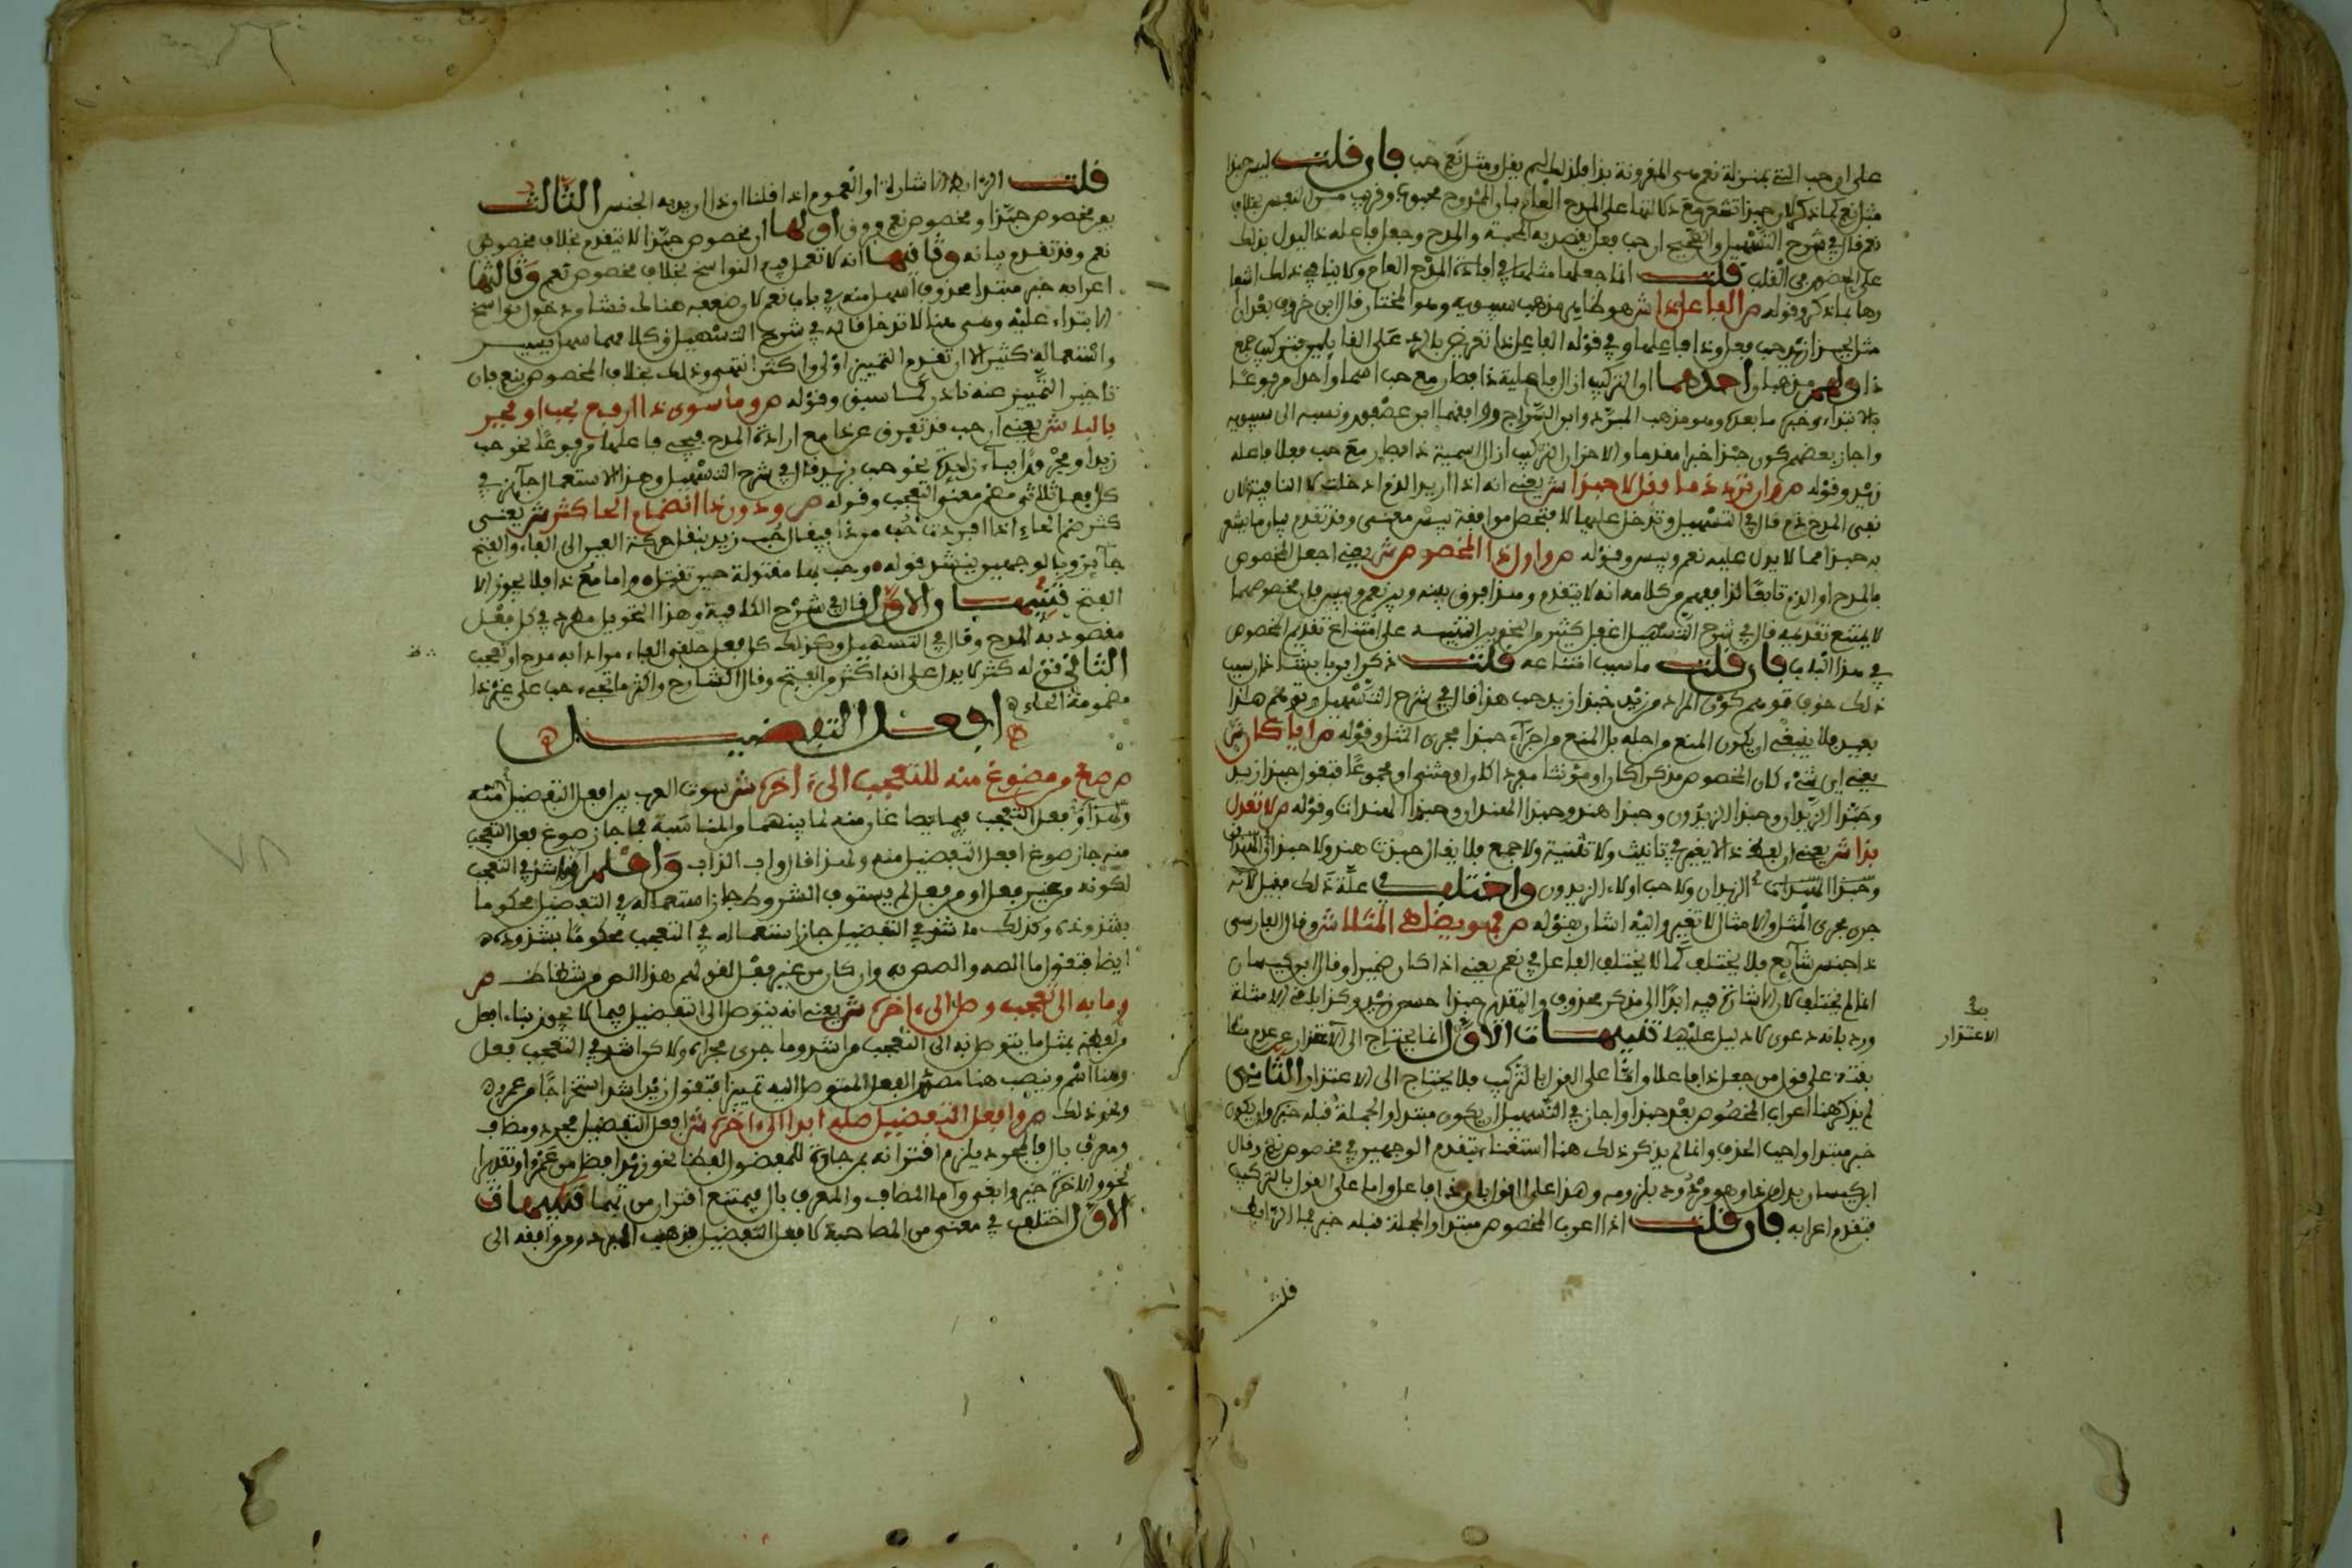 على ان حب التي بمنزلة نعم ميمي المقرونة بذا فلذلك لم يقل ومثل نعم حب فان قلت ليس حبذا
مثل نعم كما ذكر لان حبذا تشعر مع دلالتها على المدح العام بان الممدوح محبوب وقريب من النفس بخلاف
نعم قال في شرح التسهيل والصحيح ان حب فعل يقصد به المحبة والمدح وجعل فاعله ذا ليدل بذلك
على الحضور في القلب قلت انما جعلها مثلها في افادة المدح العام ولا ينافي ذلك انها
وقوله ص الفاعل ذا ش هو ظاهر مذهب سيبويه وهو المختار قال ابن خروف بعد ان
مثل بحبذا زيد حب فعل وذا فاعلها وفي قوله الفاعل ذا تعريض بالرد على القايلين بتركيب حب مع
ذا ولهم مذهبان احدهما ان التركيب ازال فاعلية ذا فصار مع حب اسما واحدا مرفوعا
بالابتداء وخبره ما بعده وهو مذهب المبرد وابن السراج ووافقهما ابن عصفور ونسبه الى سيبويه
واجاز بعضهم كون حبذا خبرا مقدما والاخر ان التركيب ازال اسمية ذا فصار مع حب فعلا فاعله
زيد وقوله ص وان ترد ذما فقل لا حبذا ش يعني انه اذا اريد الذم ادخلت لا النافية لان
نفي المدح ذم قال في التسهيل وتدخل عليها لا فتحصل موافقة بيس معنى وقد تقدم بيان ما يشعر
به حبذا مما لا يدل عليه نعم وبيس وقوله ص واول ذا المخصوص ش يعني اجعل المخصوص
بالمدح او الذم تابعا لذا ففهم من كلامه انه لا يتقدم وهذا فرق بينه وبين نعم وبيس فان مخصوصهما
لا يمتنع تقديمه قال في شرح التسهيل اغفل كثير من النحويين التنبيه على امتناع تقديم المخصوص
في هذا الباب فان قلت ما سبب امتناعه قلت ذكر ابن بابشاذ ان سبب
ذلك خوف توهم كون المراد من زيد حبذا زيد حب هذا قال في شرح التسهيل وتوهم هذا
بعيد فلا ينبغي ان يكون المنع من اجله بل المنع من اجراء حبذا مجرى المثل وقوله ص ايا كان ش
يعني اي شيء كان المخصوص مذكرا كان او مؤنثا مفردا كان او مثنى او مجموعا فتقول حبذا زيد
وحبذا الزيدان وحبذا الزيدون وحبذا هند وحبذا الهندان وحبذا الهندات وقوله ص لا تعدل
بذا ش يعني ان لفظ ذا لا يغير في تانيث ولا تثنية ولا جمع فلا يقال حبذي هند ولا حبذان
الزيدان ولا حب اولاء الزيدون واختلف في علة ذلك فقيل لانه
جرى مجرى المثل والامثال لا تغير واليه اشار بقوله ص فهو يضاهي المثلا ش وقال الفارسي
ذا جنس شايع فلا يختلف كما لا يختلف الفاعل في نعم يعني اذا كان ضميرا وقال ابن كيسان
انما لم يختلف لان الاشارة فيه ابدا الى مذكر محذوف والتقدير حبذا حسن زيد وكذا باقي الامثلة
ورد بانه دعوى لا دليل عليها تنبيهات الاول انما يحتاج الى الاعتذار عن عدم مطا
بقته على قول من جعل ذا فاعلا واما على القول بالتركيب فلا يحتاج الى الاعتذار الثاني
لم يذكر هنا اعراب المخصوص بعد حبذا واجاز في التسهيل ان يكون مبتدا والجملة قبله خبره وان يكون
خبر مبتدا واجب الحذف وانما لم يذكر ذلك هنا استغناء بتقدم الوجهين في مخصوص نعم وقال
ابن كيسان بدل من ذا وهو مردود بلزومه وهذا على القول بان ذا فاعل واما على القول بالتركيب
فتقدم اعرابه فان قلت اذا اعرب المخصوص مبتدا والجملة قبله خبر فما الرابط
قلت
الاعتذار
قلت الرابط الاشارة او العموم اذا قلنا ان ذا اريد به الجنس الثالث
بين مخصوص حبذا ومخصوص نعم فروق اولها ان مخصوص حبذا لا يتقدم بخلاف مخصوص
نعم وقد تقدم بيانه وثانيها انه لا تعمل فيه النواسخ بخلاف مخصوص نعم وثالثها
اعرابه خبر مبتدا محذوف اسهل منه في باب نعم لان ضعفه هنالك نشا من دخول نواسخ
الابتداء عليه وهي هنا لا تدخل قاله في شرح التسهيل
واستعماله كثير الا ان تقديم التمييز اولى واكثر انتهى وذلك بخلاف المخصوص بنعم فان
تاخير التمييز عنه نادر كما سبق وقوله ص وما سوى ذا ارفع بحب او فجر
بالبا ش يعني ان حب قد تفرق عن ذا مع ارادة المدح فيجيء فاعلها مرفوعا نحو حب
زيد او مجرورا بباء زايدة نحو حب بزيد قال في شرح التسهيل وهذا الاستعمال جايز في
كل فعل ثلاثي مضمن معنى التعجب وقوله ص ودون ذا انضمام الحا كثر ش يعني
كثر ضم الحاء اذا افردت حب من ذا فيقال حب زيد بنقل حركة العين الى الفاء والفتح
جايز وبالوجهين ينشد قوله وحب بها مقتولة حين تقتل واما مع ذا فلا يجوز الا
الفتح تنبيهان الاول قال في شرح الكافية وهذا التحويل مطرد في كل فعل
مقصود به المدح وقال في التسهيل وكذلك كل فعل حلقي الفاء مرادا به مدح او تعجب
الثاني قوله كثر لا يدل على انه اكثر من الفتح وقال الشارح واكثر ما تجيء حب على غير ذا
مضمومة الحاء
افعل التفضيل
ص صغ من مصوغ منه للتعجب الى اخره ش سوت العرب بين افعل التفضيل
وفعل التعجب فيما يصاغان منه لما بينهما من المناسبة فما جاز صوغ فعل التعجب
منه جاز صوغ افعل التفضيل منه ولهذا قال واب الذاب واعلم ان ما شذ في التعجب
لكونه من غير فعل او من فعل لم يستوف الشروط جاز استعماله في التفضيل محكوما
بشذوذه وكذلك ما شذ في التفضيل جاز استعماله في التعجب محكوما بشذوذه
ايضا فتقول ما الصه والصص به وان كان من غير فعل لقولهم هذا الص من شظاظ ص
وما به الى تعجب وصل الى اخره ش يعني انه يتوصل الى التفضيل فيما لا يجوز بناء افعل
من لفظه بمثل ما يتوصل به الى التعجب من اشد وما جرى مجراه ولاكن اشد في التعجب فعل
وهنا اسم وينصب هنا مصدر الفعل المتوصل اليه تمييزا فتقول زيد اشد استخراجا من عمرو
ونحو ذلك ص وافعل التفضيل صله ابدا الى اخره ش افعل التفضيل مجرد ومضاف
ومعرف بال فالمجرد يلزم اقترانه بمن جارة للمفضول لفظا نحو زيد افضل من عمرو او تقديرا
نحو والاخرة خير وابقى واما المضاف والمعرف بال فيمتنع اقترانهما بمن تنبيهات
الاول اختلف في معنى من المصاحبة لافعل التفضيل فذهب المبرد ومن وافقه الى